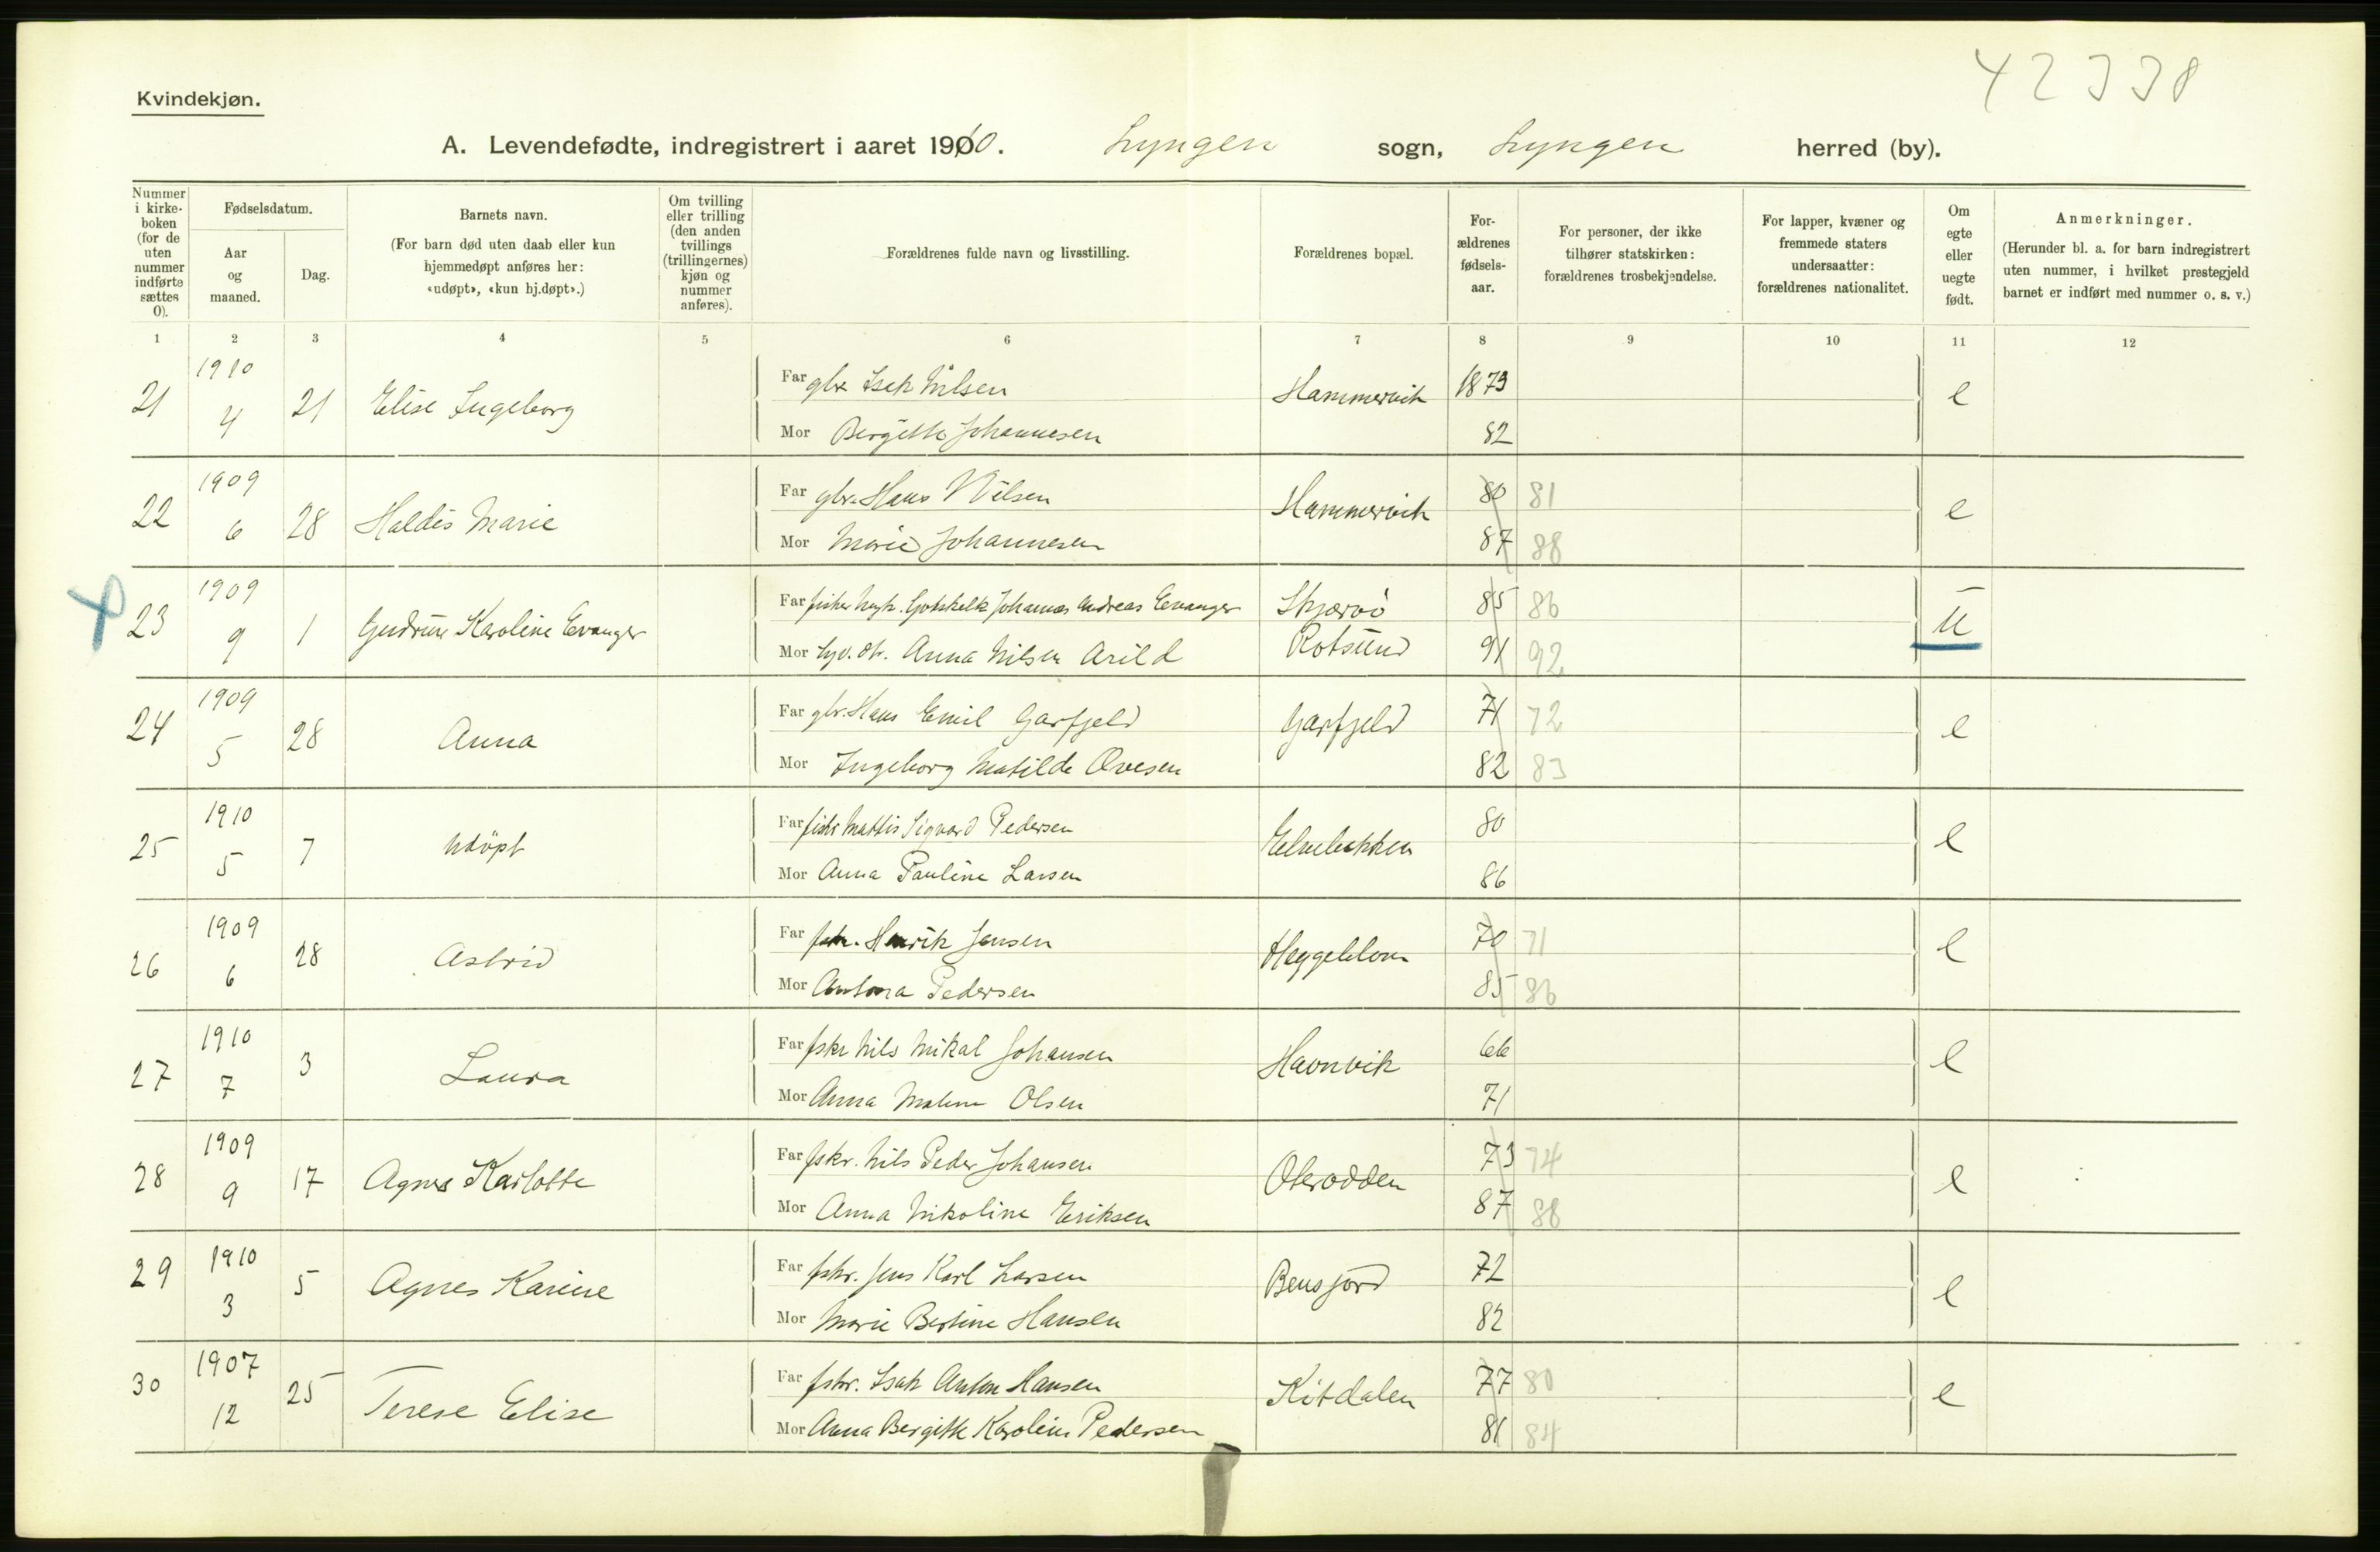 42338
Kvindekjøn.
A. Levendefødte, indregistrert i aaret 1910. Lyngen sogn, Lyngen herred (by).
Nummer i kirkeboken (for de uten nummer indførte sættes 0).
Fødselsdatum.
Aar og maaned.
Dag.
Barnets navn.
(For barn død uten daab eller kun hjemmedøpt anføres her: «udøpt», «kun hj.døpt».)
Om tvilling eller trilling (den anden tvillings (trillingernes) kjøn og nummer anføres).
Forældrenes fulde navn og livsstilling.
Forældrenes bopæl.
Forældrenes fødselsaar.
For personer, der ikke tilhører statskirken: forældrenes trosbekjendelse.
For lapper, kvæner og fremmede staters undersaatter: forældrenes nationalitet.
Om egte eller uegte født.
Anmerkninger.
(Herunder bl. a. for barn indregistrert uten nummer, i hvilket prestegjeld barnet er indført med nummer o. s. v.)
1 2 3 4 5 6 7 8 9 10 11 12
21 1910 4 21 Elise Ingeborg Far gbr Isak Nilsen Hammervik 1879 e
Mor Bergitte Johannesen 82
22 1909 6 28 Haldis Marie Far gbr. Hans Nilsen Hammervik 80 81 e
Mor Marie Johannesen 87 88
23 1909 9 1 Gudrun Karoline Evanger Far Johannes Andreas Evanger Skjærvö 85 86 u
Mor Anna Nilsen Arild Rotsund 91 92
24 1909 5 28 Anna Far gbr. Hans Emil Garfjeld Garfjeld 71 72 e
Mor Ingeborg Matilde Ovesen 82 83
25 1910 5 7 Udöpt Far fiskr Mattis Sigvard Pedersen Elvebakken 80 e
Mor Anna Pauline Larsen 86
26 1909 6 28 Astrid Far fskr. Henrik Jensen 70 71 e
Mor Antona Pedersen 85 86
27 1910 7 3 Laura Far fskr Nils Mikal Johansen Havnvik 66 e
Mor Anna Malene Olsen 71
28 1909 9 17 Agnes Karlotte Far fskr. Nils Peder Johansen Oterodden 73 74 e
Mor Anna Nikoline Eriksen 87 88
29 1910 3 5 Agnes Karine Far fskr. Jens Karl Larsen Bensjord 72 e
Mor Marie Bertine Hansen 82
30 1907 12 25 Terese Elise Far fskr. Isak Anton Hansen Kitdalen 77 80 e
Mor Anna Bergitte Karoline Pedersen 81 84